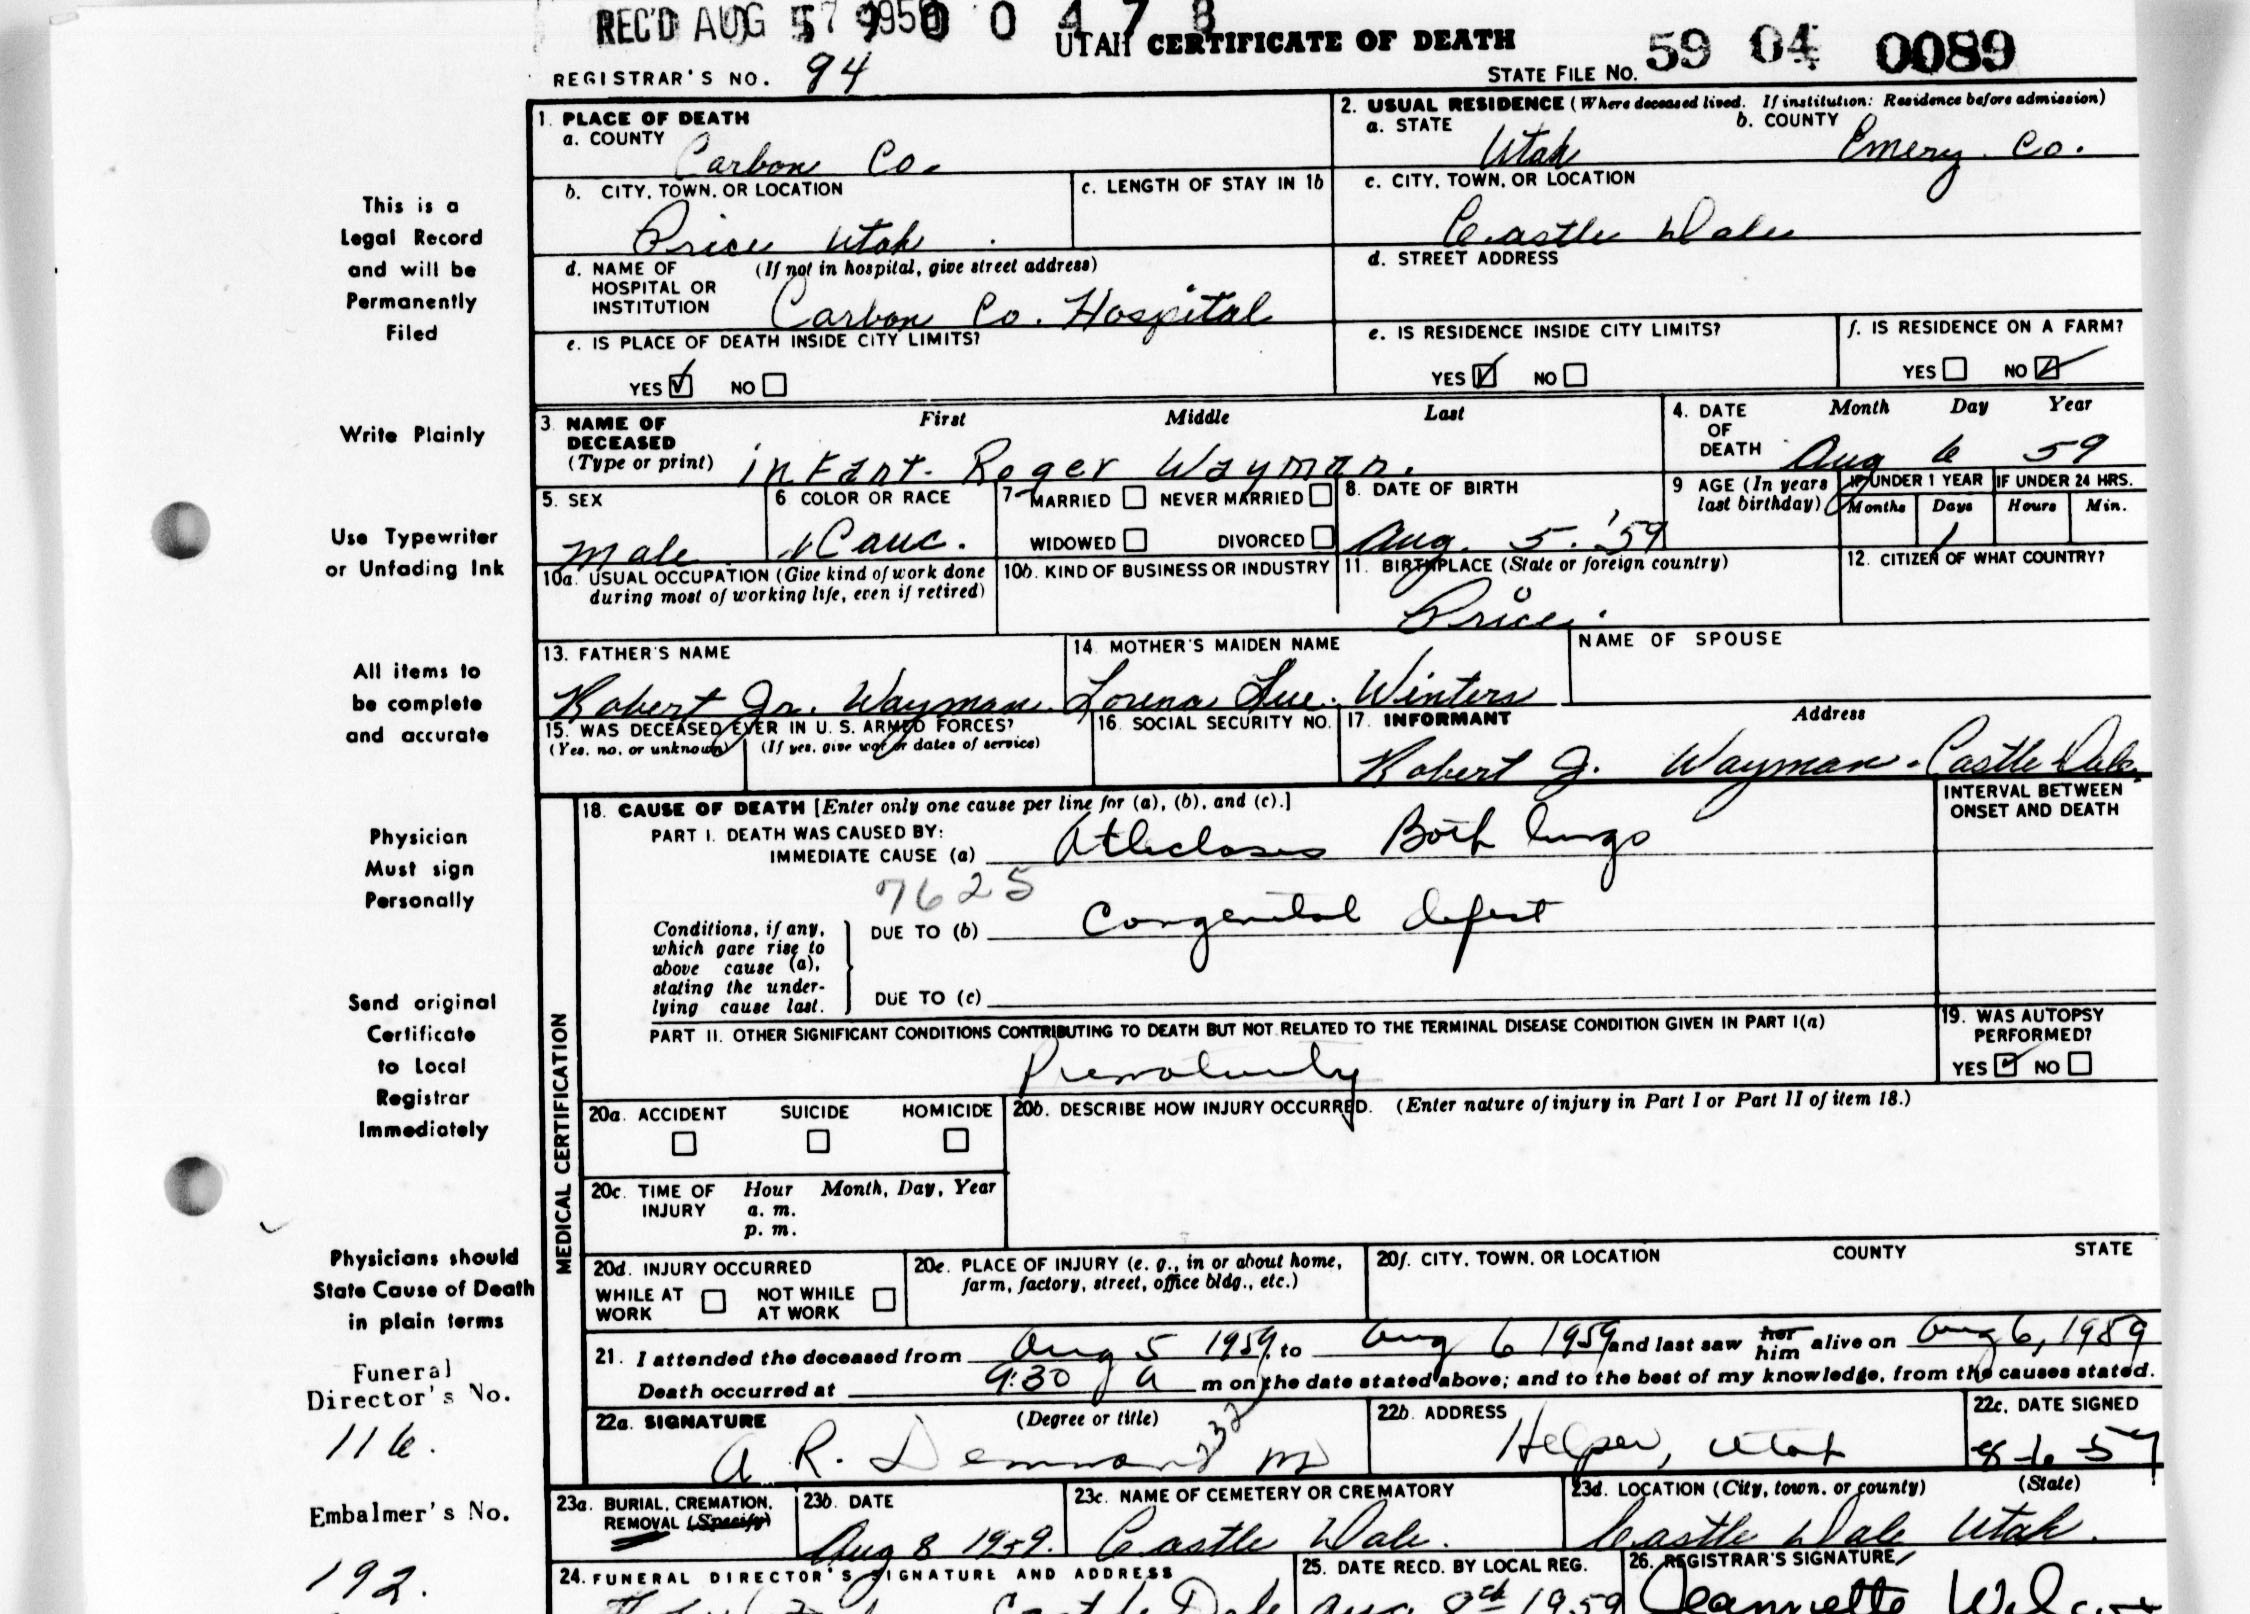 REC'D AUG 1959 0 0 4 7 8
UTAH CERTIFICATE OF DEATH
REGISTRAR'S NO. 94
STATE FILE NO. 59 04 0089
1. PLACE OF DEATH
a. COUNTY
Carbon Co.
2. USUAL RESIDENCE (Where deceased lived. If institution: Residence before admission)
a. STATE Utah b. COUNTY Emery Co.
b. CITY, TOWN, OR LOCATION
Price Utah
c. LENGTH OF STAY IN 1b
c. CITY, TOWN, OR LOCATION
Castle Dale
d. NAME OF HOSPITAL OR INSTITUTION (If not in hospital, give street address)
Carbon Co. Hospital
d. STREET ADDRESS
e. IS PLACE OF DEATH INSIDE CITY LIMITS?
YES NO
e. IS RESIDENCE INSIDE CITY LIMITS?
YES NO
f. IS RESIDENCE ON A FARM?
YES NO
3. NAME OF DECEASED (Type or print) First Middle Last
infant. Roger Wayman.
4. DATE OF DEATH Month Day Year
Aug 6 59
5. SEX
male
6 COLOR OR RACE
Cauc.
7 MARRIED NEVER MARRIED
WIDOWED DIVORCED
8. DATE OF BIRTH
Aug. 5. '59
9 AGE (In years last birthday)
IF UNDER 1 YEAR IF UNDER 24 HRS.
Months Days Hours Min.
1
10a. USUAL OCCUPATION (Give kind of work done during most of working life, even if retired)
10b. KIND OF BUSINESS OR INDUSTRY
11. BIRTHPLACE (State or foreign country)
Price.
12. CITIZEN OF WHAT COUNTRY?
13. FATHER'S NAME
Robert Jr. Wayman.
14. MOTHER'S MAIDEN NAME
Lorena Sue. Winters
NAME OF SPOUSE
15. WAS DECEASED EVER IN U. S. ARMED FORCES?
(Yes, no, or unknown) (If yes, give war or dates of service)
16. SOCIAL SECURITY NO.
17. INFORMANT Address
Robert J. Wayman. Castle Dale
MEDICAL CERTIFICATION
18. CAUSE OF DEATH [Enter only one cause per line for (a), (b), and (c).]
INTERVAL BETWEEN ONSET AND DEATH
PART I. DEATH WAS CAUSED BY:
IMMEDIATE CAUSE (a) Atleclases Both lungs
7625
Conditions, if any, which gave rise to above cause (a), stating the underlying cause last.
DUE TO (b) Congenital defect
DUE TO (c)
PART II. OTHER SIGNIFICANT CONDITIONS CONTRIBUTING TO DEATH BUT NOT RELATED TO THE TERMINAL DISEASE CONDITION GIVEN IN PART I(a)
Prematurity
19. WAS AUTOPSY PERFORMED?
YES NO
20a. ACCIDENT SUICIDE HOMICIDE
20b. DESCRIBE HOW INJURY OCCURRED. (Enter nature of injury in Part I or Part II of item 18.)
20c. TIME OF INJURY Hour Month, Day, Year
a. m.
p. m.
20d. INJURY OCCURRED
WHILE AT WORK NOT WHILE AT WORK
20e. PLACE OF INJURY (e. g., in or about home, farm, factory, street, office bldg., etc.)
20f. CITY, TOWN, OR LOCATION COUNTY STATE
21. I attended the deceased from Aug 5 1959, to Aug 6 1959 and last saw her him alive on Aug 6, 1959
Death occurred at 9:30 a m on the date stated above; and to the best of my knowledge, from the causes stated.
22a. SIGNATURE (Degree or title)
A. R. Demman MD
232
22b. ADDRESS
Helper, Utah
22c. DATE SIGNED
8-6-59
23a. BURIAL, CREMATION, REMOVAL (Specify)
23b. DATE
Aug 8 1959.
23c. NAME OF CEMETERY OR CREMATORY
Castle Dale.
23d. LOCATION (City, town, or county) (State)
Castle Dale Utah.
24. FUNERAL DIRECTOR'S SIGNATURE AND ADDRESS
Castle Dale
25. DATE RECD. BY LOCAL REG.
Aug 8th 1959
26. REGISTRAR'S SIGNATURE
Jeannette
This is a
Legal Record
and will be
Permanently
Filed
Write Plainly
Use Typewriter
or Unfading Ink
All items to
be complete
and accurate
Physician
Must sign
Personally
Send original
Certificate
to Local
Registrar
Immediately
Physicians should
State Cause of Death
in plain terms
Funeral
Director's No.
116.
Embalmer's No.
192.